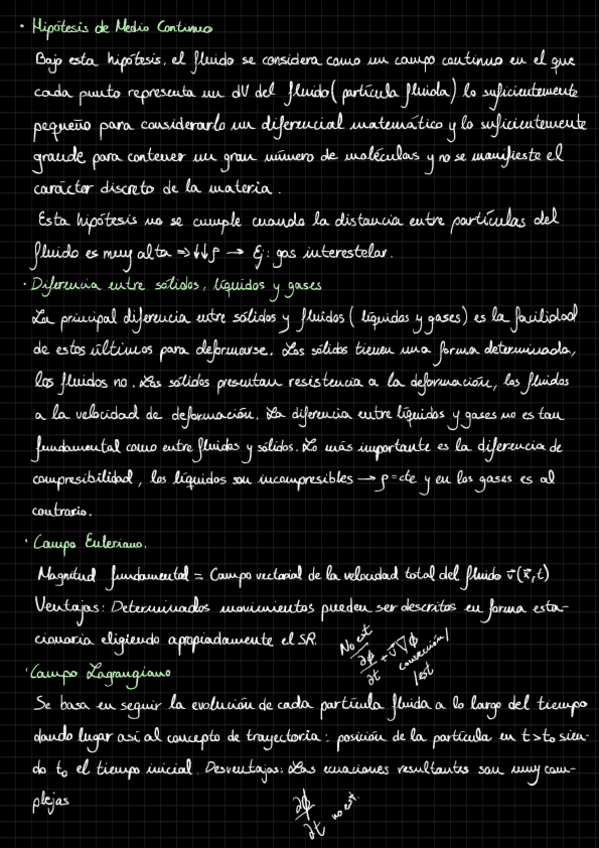 · Hipótesis de Medio Continuo
Bajo esta hipótesis, el fluido se considera como un campo continuo en el que
cada punto representa un dV del fluido (partícula fluida) lo suficientemente
pequeño para considerarlo un diferencial matemático y lo suficientemente
grande para contener un gran número de moléculas y no se manifieste el
carácter discreto de la materia.
Esta hipótesis no se cumple cuando la distancia entre partículas del
fluido es muy alta ⇒ ↓↓ρ → Ej: gas interestelar.
· Diferencia entre sólidos, líquidos y gases
La principal diferencia entre sólidos y fluidos (líquidos y gases) es la facilidad
de estos últimos para deformarse. Los sólidos tienen una forma determinada,
los fluidos no. Los sólidos presentan resistencia a la deformación, los fluidos
a la velocidad de deformación. La diferencia entre líquidos y gases no es tan
fundamental como entre fluidos y sólidos. Lo más importante es la diferencia de
compresibilidad, los líquidos son incompresibles → ρ=cte y en los gases es al
contrario.
· Campo Euleriano.
Magnitud fundamental = Campo vectorial de la velocidad total del fluido v⃗(x⃗,t)
Ventajas: Determinados movimientos pueden ser descritos en forma esta-
cionaria eligiendo apropiadamente el SR.
No est
∂ϕ/∂t + v⃗∇ϕ
convección/
/est
· Campo Lagrangiano
Se basa en seguir la evolución de cada partícula fluida a lo largo del tiempo
dando lugar así al concepto de trayectoria: posición de la partícula en t>t₀ sien-
do t₀ el tiempo inicial. Desventajas: Las ecuaciones resultantes son muy com-
plejas
∂ϕ/∂t no est.